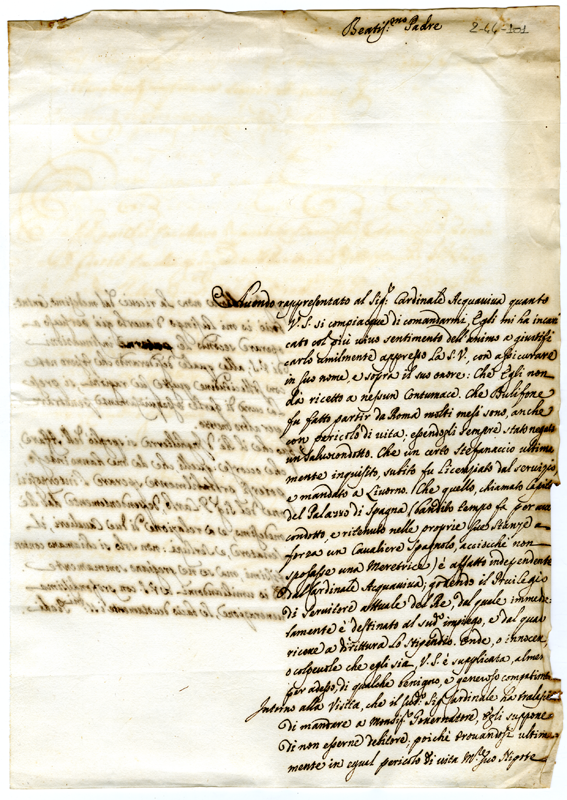 Beatiss.mo Padre
2-44-101
Avendo rappresentato al Sig.r Cardinale Acquaviva quanto
V. S. si compiacque di comandarmi, Egli mi ha incari
cato col più vivo sentimento dell'animo a giustifi
carlo umilmente appresso La S. V. con assicurare
in suo nome, e sopra il suo onore: Che Egli non
dà ricetto a nessun Contumace. Che Bulifone
fu fatto partir da Roma molti mesi sono, anche
con pericolo di vita, essendogli sempre stato negato
un Salvocondotto. Che un certo Stefanaccio ultima
mente inquisito, subito fu licenziato dal servizio,
e mandato a Livorno. Che quello, chiamato
del Palazzo di Spagna (bandito tempo fa per aver
condotto, e ritenuto nelle proprie sue stanze a
forza un Cavaliere Spagnolo, acciochè non
sposasse una Meretrice) è affatto independente
dal Cardinale Acquaviva; godendo il Privilegio
di Servitore attuale del Re, dal quale immedia
tamente è destinato al sud.o impiego, e dal qua
riceve a dirittura lo stipendio. Onde, o innocen
o colpevole che egli sia, V. S. è supplicata, almen
per adesso, di qualche benigno, e generoso compatime
Intorno alla Visita, che il sud.o Sig.r Cardinale ha tralascia
di mandare a Monsig.r Governatore, Egli suppone
di non esserne debitore; poichè trovandosi ultima
mente in egual pericolo di vita M.r suo Nipote